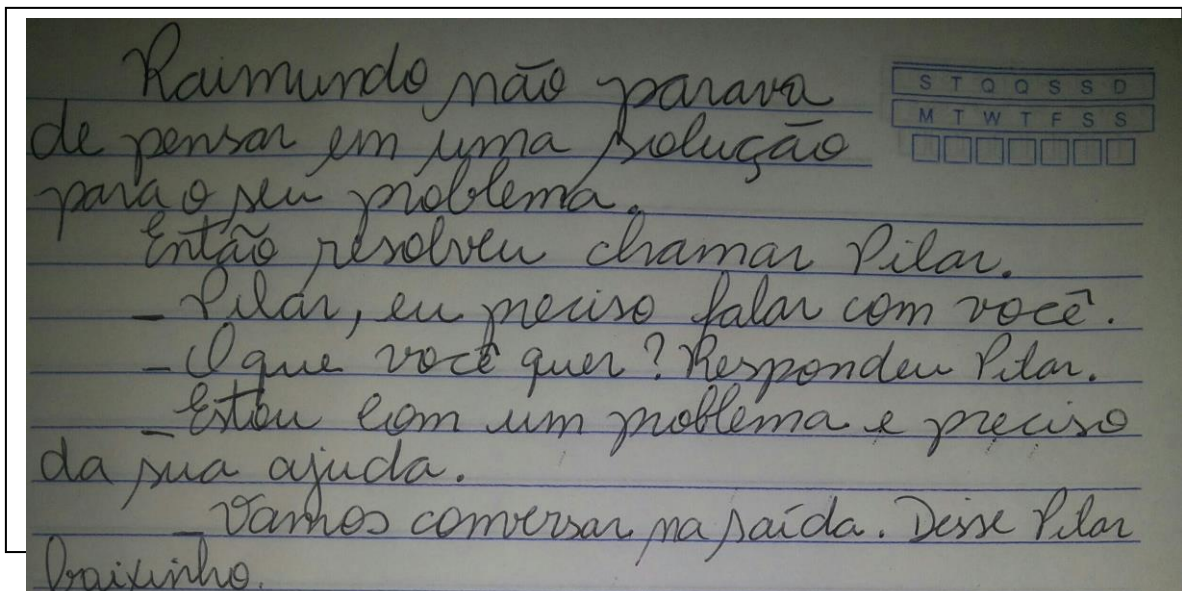 Raimundo não parava
S T Q Q S S D
M T W T F S S
de pensar em uma solução
para o seu problema.
Então resolveu chamar Pilar.
– Pilar, eu preciso falar com você.
– O que você quer? Respondeu Pilar.
– Estou com um problema e preciso
da sua ajuda.
– Vamos conversar na saída. Disse Pilar
baixinho.